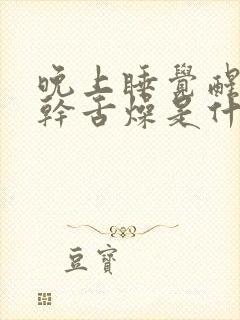 晚上睡覺醒
幹舌燥是什
豆寶